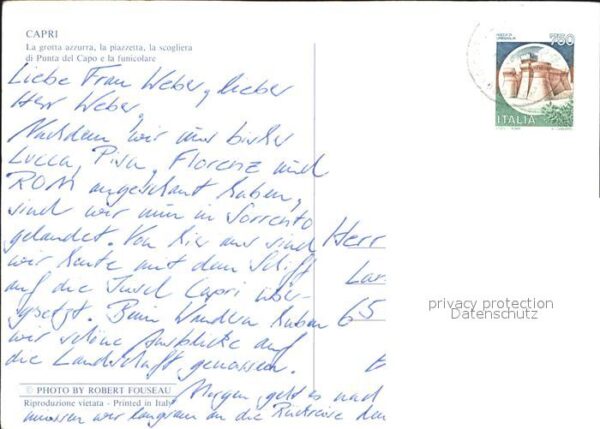 CAPRI
La grotta azzurra, la piazzetta, la scogliera
di Punta del Capo e la funicolare
Liebe Frau Weber, lieber
Herr Weber,
Nachdem wir uns bisher
Lucca, Pisa, Florenz und
ROM angeschaut haben,
sind wir nun in Sorrento
gelandet. Von hier aus sind
wir heute mit dem Schiff
auf die Insel Capri über-
gesetzt. Beim Wandern haben
wir schöne Ausblicke auf
die Landschaft genossen.
Morgen geht es nach
müssen wir langsam an die Rückreise den
© PHOTO BY ROBERT FOUSEAU
Riproduzione vietata - Printed in Italy
750
ITALIA
Herr
Lar
65
privacy protection
Datenschutz